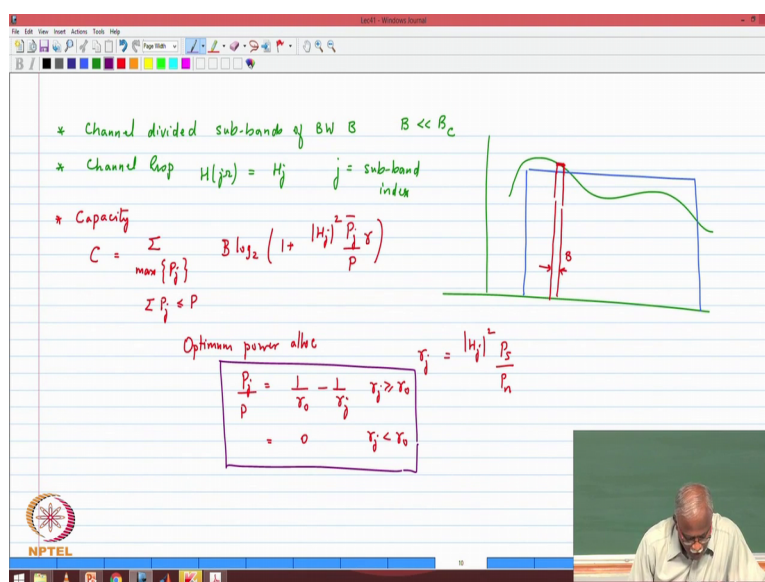 Lec41 - Windows Journal
File Edit View Insert Actions Tools Help
Page Width
B I
* Channel divided sub-bands of BW B B << B_c
* Channel Resp H(jΩ) = H_j j = sub-band index
* Capacity
C = Σ max {P_j} Σ P_j ≤ P B log₂ (1 + |H_j|² P̄_j/P γ)
B
Optimum power alloc
γ_j = |H_j|² P_s/P_n
P_j/P = 1/γ₀ - 1/γ_j γ_j ≥ γ₀
= 0 γ_j < γ₀
NPTEL
10